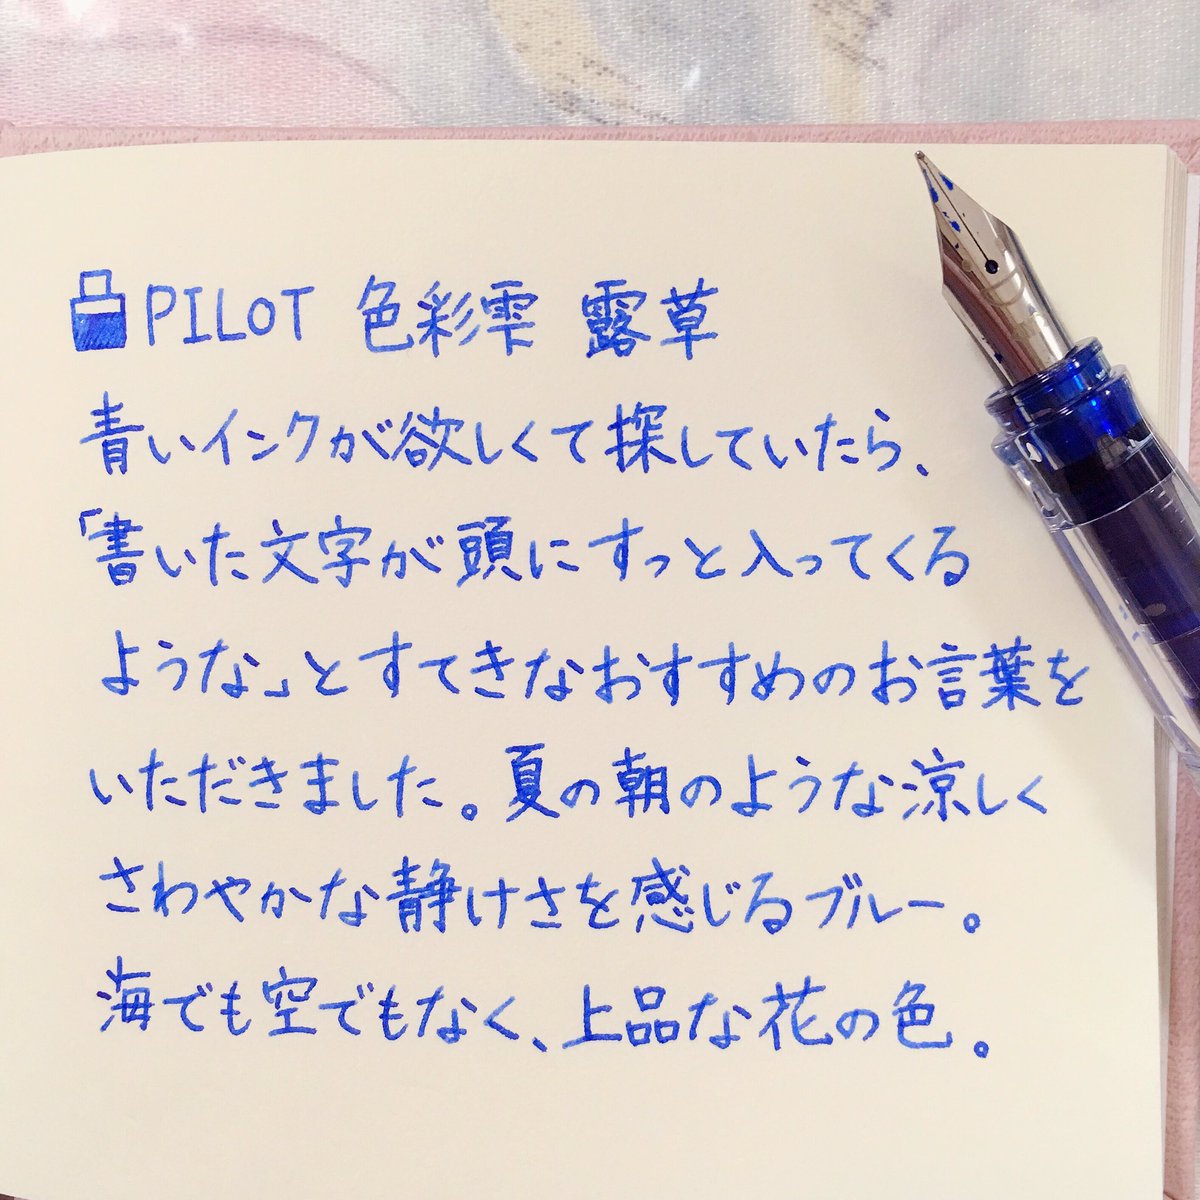 PILOT 色彩雫 露草
青いインクが欲しくて探していたら、
「書いた文字が頭にすっと入ってくる
ような」とすてきなおすすめのお言葉を
いただきました。夏の朝のような涼しく
さわやかな静けさを感じるブルー。
海でも空でもなく、上品な花の色。